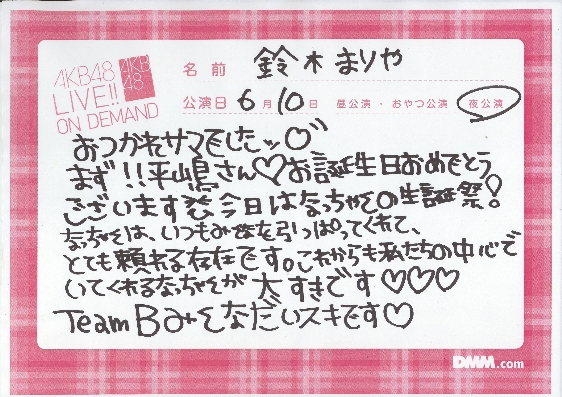 AKB48
LIVE!!
ON DEMAND
AKB
48
名前 鈴木まりや
公演日 6月10日 昼公演・おやつ公演・夜公演
おつかれサマでしたッ♡
まず!!平嶋さん♡お誕生日おめでとう
ございます 今日はなっちゃんの生誕祭!
なっちゃんは、いつもみんなを引っぱってくれて、
とても頼れる存在です。これからも私たちの中心で
いてくれるなっちゃんが大すきです♡♡♡
Team Bみんなだいスキです♡
DMM.com